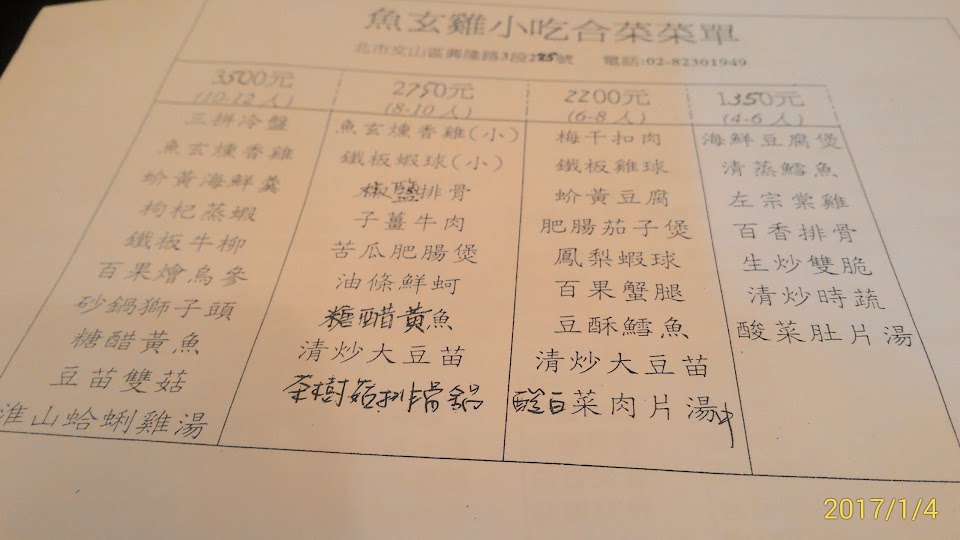 魚玄雞小吃合菜菜單
北市文山區興隆路3段285號 電話:02-82301949
3500元
(10-12人)
三拼冷盤
魚玄燻香雞
蚧黃海鮮羹
枸杞蒸蝦
鐵板牛柳
百果燴烏參
砂鍋獅子頭
糖醋黃魚
豆苗雙菇
淮山蛤蜊雞湯
2750元
(8-10人)
魚玄燻香雞(小)
鐵板蝦球(小)
椒鹽排骨
子薑牛肉
苦瓜肥腸煲
油條鮮蚵
糖醋黃魚
清炒大豆苗
茶樹菇排骨鍋
2200元
(6-8人)
梅干扣肉
鐵板雞球
蚧黃豆腐
肥腸茄子煲
鳳梨蝦球
百果蟹腿
豆酥鱈魚
清炒大豆苗
酸白菜肉片湯中
1350元
(4-6人)
海鮮豆腐煲
清蒸鱈魚
左宗棠雞
百香排骨
生炒雙脆
清炒時蔬
酸菜肚片湯
2017/1/4